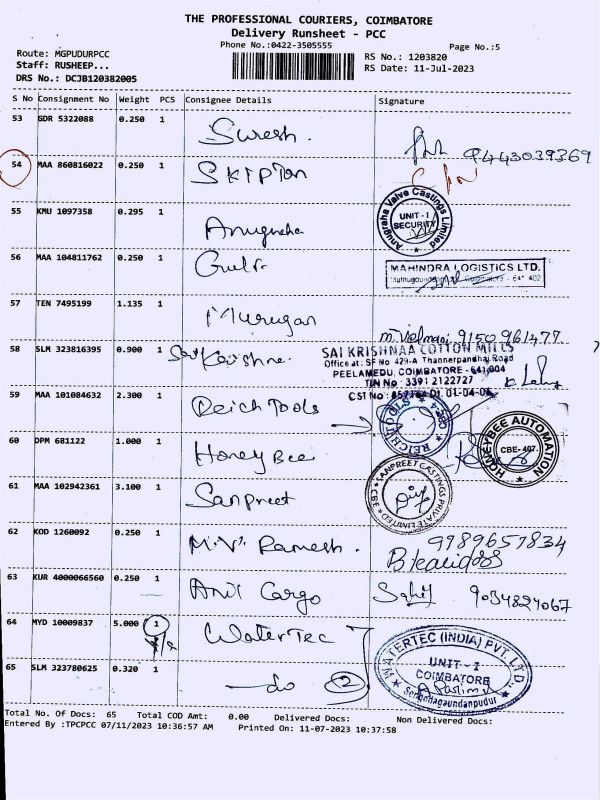 THE PROFESSIONAL COURIERS, COIMBATORE
Delivery Runsheet - PCC
Phone No.:0422-3505555
Page No.:5
Route: MGPUDURPCC
RS No.: 1203820
Staff: RUSHEEP...
RS Date: 11-Jul-2023
DRS No.: DCJB120382005
S No Consignment No Weight PCS Consignee Details Signature
53 GDR 5322088 0.250 1 Suresh. 9443039369
54 MAA 860816022 0.250 1 SKIPTon
55 KMU 1097358 0.295 1 Anugraha Anugraha Valve Castings Limited UNIT-I SECURITY
56 MAA 104811762 0.250 1 MAHINDRA LOGISTICS LTD.
57 TEN 7495199 1.135 1 Murugan 9150961477
58 SLM 323816395 0.900 1 Sai Krishna SAI KRISHNAA COTTON MILLS
Office at: SF No 429-A Thannerpandhal Road
PEELAMEDU, COIMBATORE - 641 004
TIN No : 3391 2122727
CST No :
59 MAA 101084632 2.300 1 Reich Tools REICH TOOLS
60 DPM 681122 1.000 1 Honey Bee HONEYBEE AUTOMATION CBE-407.
61 MAA 102942361 3.100 1 Sanpreet SANPREET CASTINGS PRIVATE LIMITED CBE
62 KOD 1260092 0.250 1 M.V. Ramesh. 9789657834
63 KUR 4000066560 0.250 1 Anil Cargo 9034824067
64 MYD 10009837 5.000 1 WaterTec WATERTEC (INDIA) PVT. LTD. UNIT - I COIMBATORE
65 SLM 323780625 0.320 1 -do 2
Total No. Of Docs: 65 Total COD Amt: 0.00 Delivered Docs: Non Delivered Docs:
Entered By :TPCPCC 07/11/2023 10:36:57 AM Printed On: 11-07-2023 10:37:58